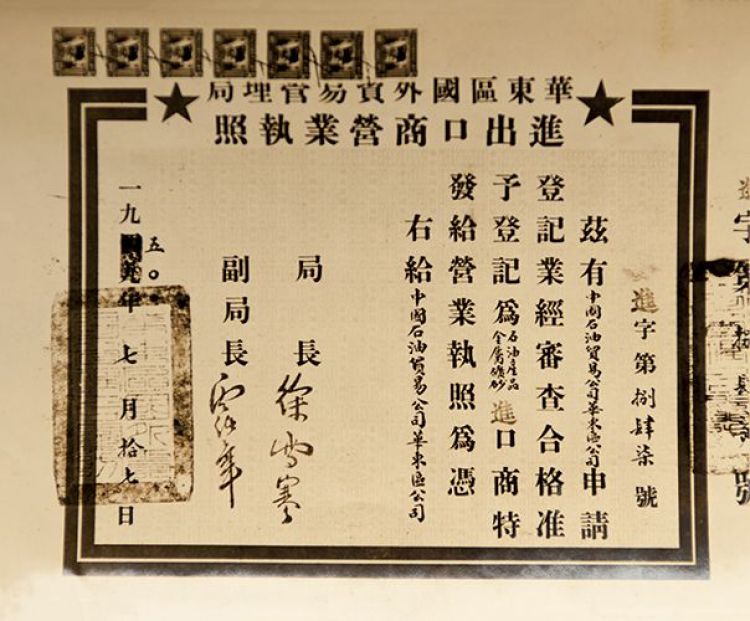 華東區國外貿易管理局
進出口商營業執照
進字第捌肆柒號
茲有中國石油貿易公司華東區公司申請
登記業經審查合格准
予登記爲石油產品金屬礦砂進口商特
發給營業執照爲憑
右給中國石油貿易公司華東區公司
局長 徐雪寒
副局長
一九五〇年七月拾七日